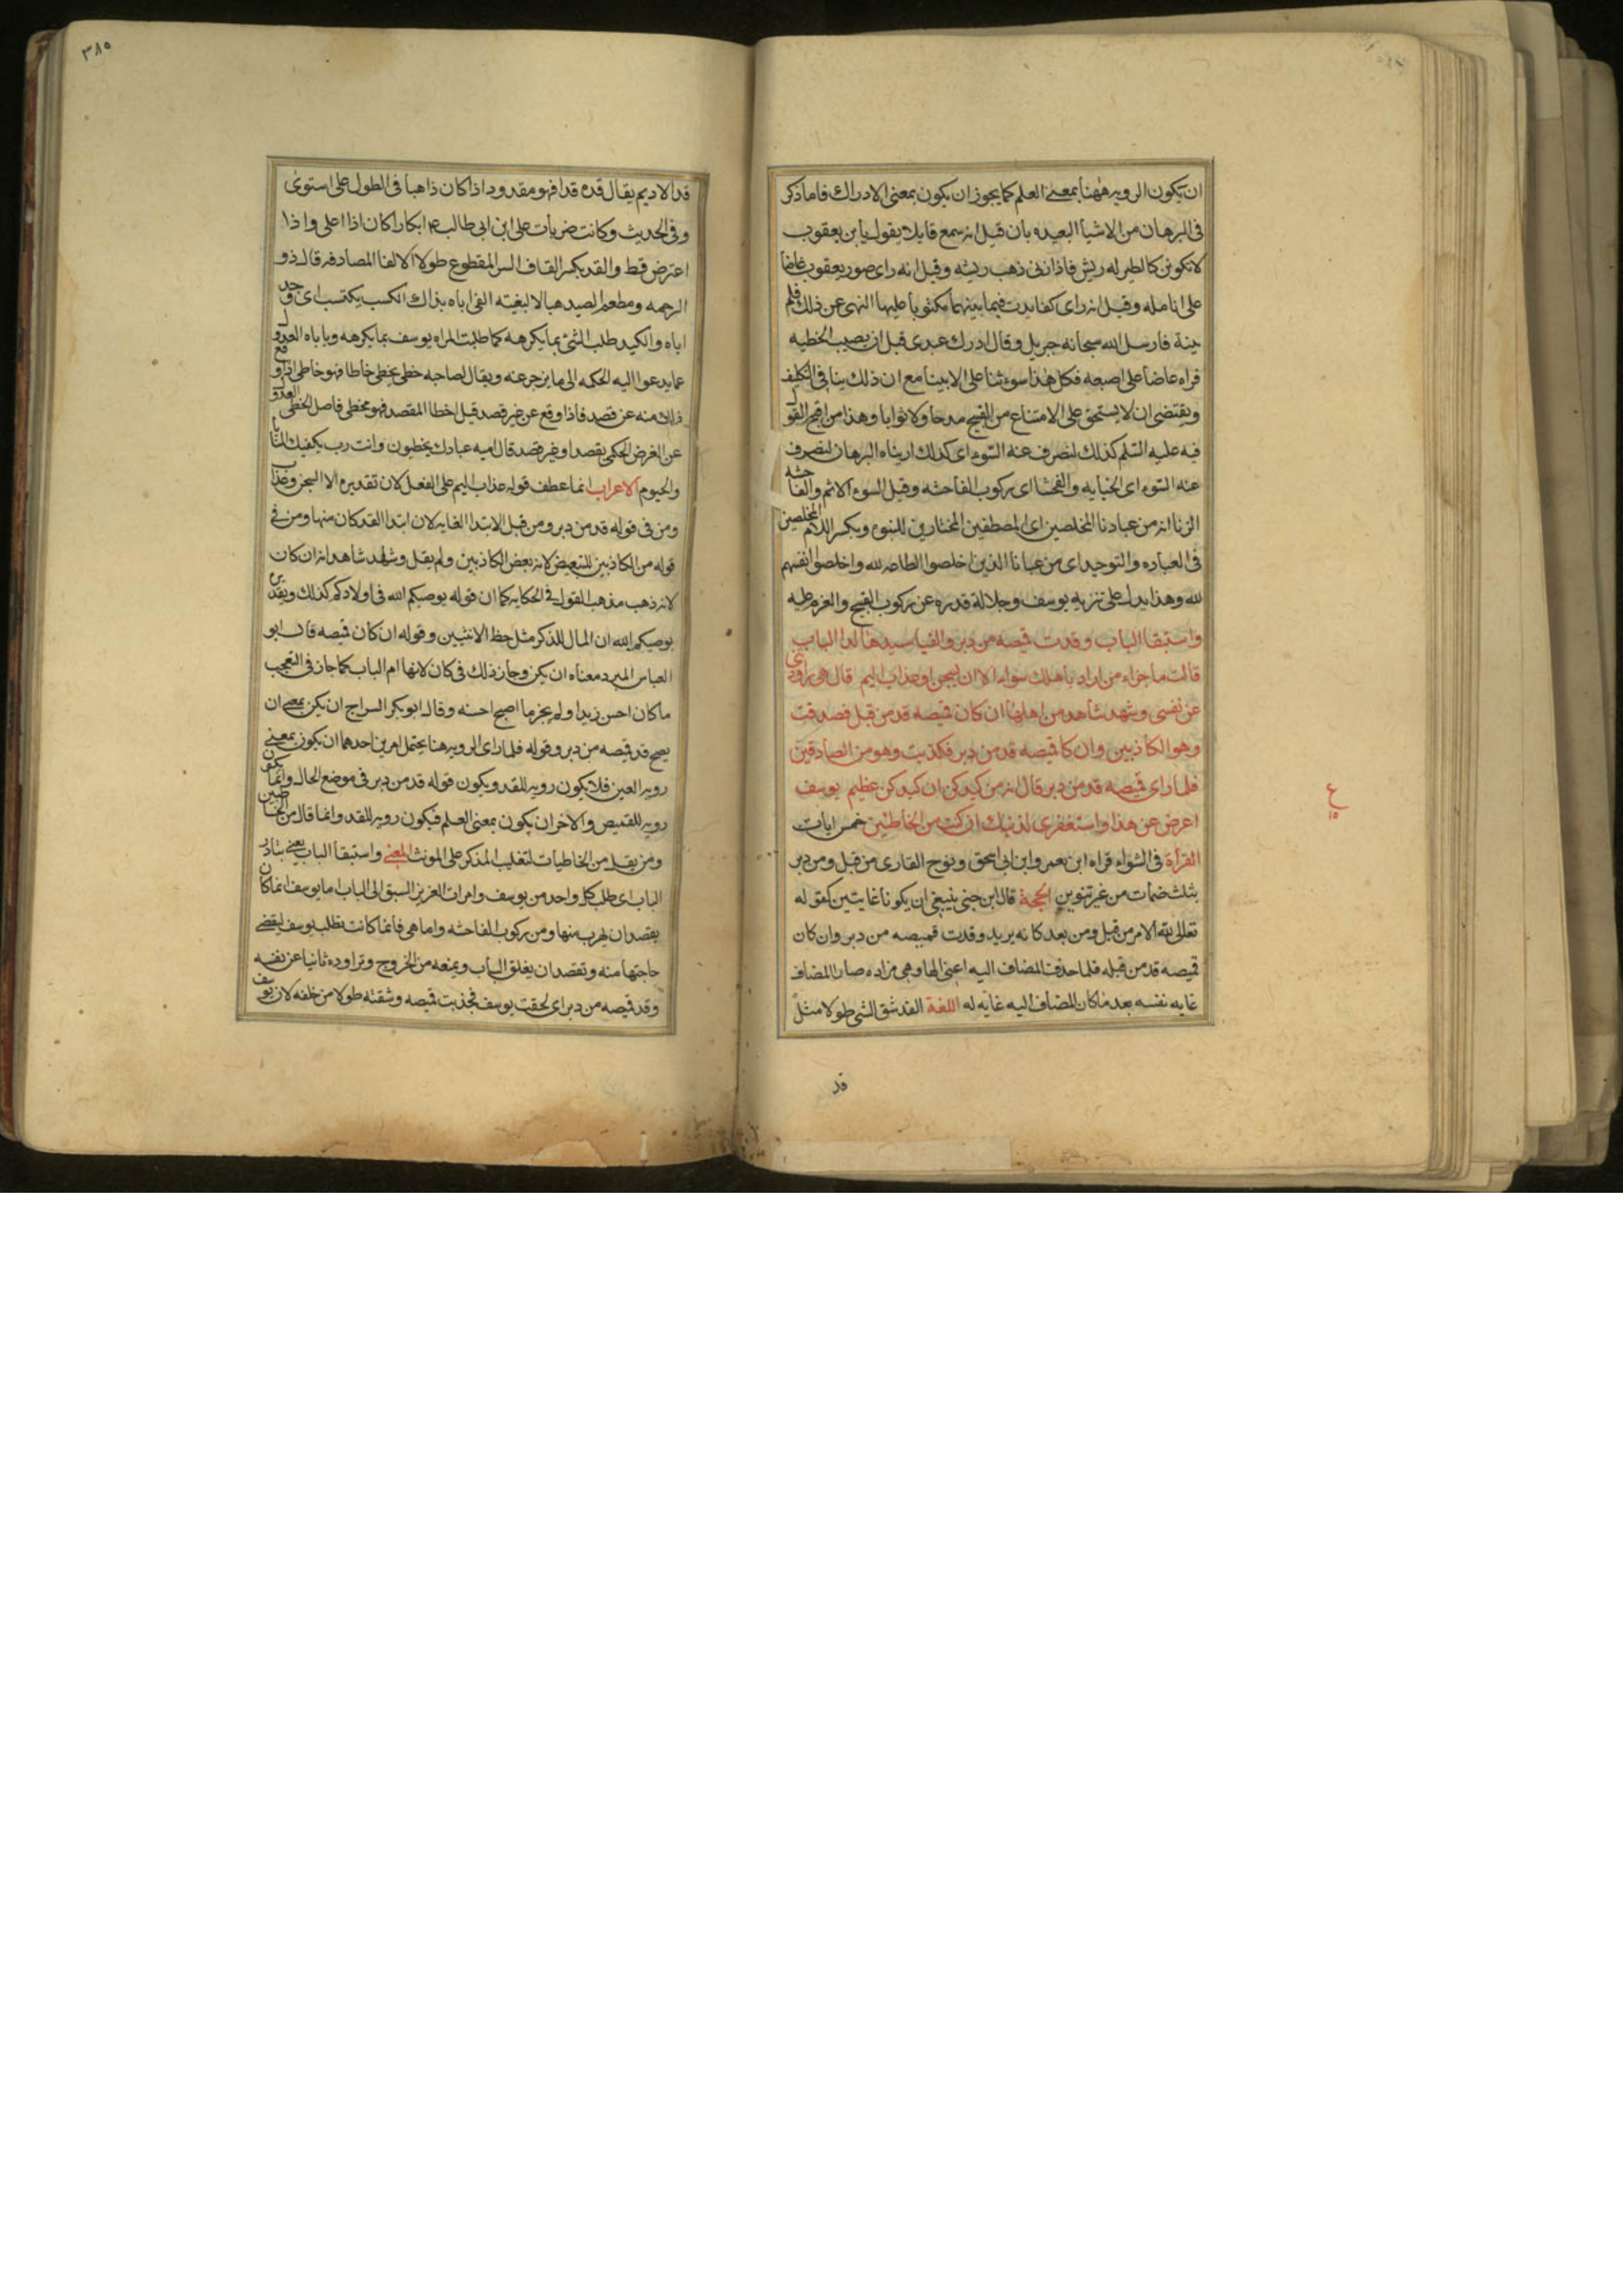 ان يكون الرويه ههنا بمعنى العلم كما يجوز ان يكون بمعنى الادراك فاما ما ذكر
فى البرهان من الاشيا البعيده بان قيل انه سمع قايلا يقول يا بن يعقوب
لا تكونن كالطير له ريش فاذا زنى ذهب ريشه وقيل انه راى صور يعقوب عاضا
على انامله وقيل انه راى كفا بدت فيما بينهما مكتوبا عليها النهى عن ذلك فلم
ينته فارسل الله سبحانه جبريل وقال ادرك عبدى قبل ان يصيب الخطيه
فراه عاضا على اصبعه فكل هذا سوء ثنا على الابنيا مع ان ذلك ينافى التكليف
ويقتضى ان لا يستحق على الامتناع من القبيح مدحا ولا ثوابا وهذا من اقبح القول
فيه عليه السلم كذلك لنصرف عنه السوء اى كذلك اريناه البرهان لنصرف
عنه السوء اى الخيانه والفحشا اى ركوب الفاحشه وقيل السوء الاثم والفاحشه
الزنا انه من عبادنا المخلصين اى المصطفين المختارين للنبوه وبكسر اللام المخلصين
فى العباده والتوحيد اى من عبادنا الذين اخلصوا الطاعه لله واخلصوا انفسهم
لله وهذا يدل على تنزيه يوسف وجلالة قدره عن ركوب القبيح والعزم عليه
واستبقا الباب وقدت قميصه من دبر والفيا سيدها لدا الباب
قالت ما جزاء من اراد باهلك سواء الا ان يسجن او عذاب اليم قال هى راودتنى
عن نفسى وشهد شاهد من اهلها ان كان قميصه قد من قبل فصدقت
وهو الكاذبين وان كا قميصه قد من دبر فكذبت وهو من الصادقين
فلما راى قميصه قد من دبر قال انه من كيدكن ان كيدكن عظيم يوسف
اعرض عن هذا واستغفرى لذنبك انك كنت من الخاطئين خمس ايات
القرأة فى الشواء قراه ابن يعمر وابن ابى اسحق ونوح القارى من قبل ومن دبر
بثلث ضمات من غير تنوين الحجة قال ابن جنى ينبغى ان يكونا غايتين كقوله
تعالى لله الامر من قبل ومن بعد كانه يريد وقدت قميصه من دبر وان كان
قميصه قد من قبله فلما حذف المضاف اليه اعنى الها وهى مراده صار المضاف
غايه نفسه بعد ما كان المضاف اليه غايه له اللغة القد شق الشى طولا مثل
قد
ع
١٥
٣٨٥
قد الاديم يقال قده قدا فهو مقدود اذا كان ذاهبا فى الطول على استوى
وفى الحديث وكانت ضربات على ابن ابى طالب ع م ابكارا كان اذا اعلى واذا
اعترض قط والقد بكسر القاف السير المقطوع طولا الالفا المصادفه قال ذو
الرمه ومطعم الصيد هبا لا لبغيته الفى اباه بذاك الكسب يكتسب اى وجد
اباه والكيد طلب الشى بما يكرهه كما طلبت المراه يوسف بما يكرهه وياباه العدول
عما يدعوا اليه الحكمه الى ما يزجر عنه ويقال لصاحبه خطى يخطى خاطا فهو خاطى اذا وقع
ذلك منه عن قصد فاذا وقع عن غير قصد قيل اخطا المقصد فهو مخطى فاصل الخطى العدول
عن الغرض الحكمى بقصد او غير قصد قال اميه عبادك يخطيون وانت رب يكفيك المنايا
والحيوم الاعراب انما عطف قوله عذاب اليم على الفعل لان تقديره الا السجن وعذاب
ومن فى قوله قد من دبر ومن قبل الابتدا الغايه لان ابتدا القد كان منها ومن فى
قوله من الكاذبين للتبعيض لانه بعض الكاذبين ولم يقل وشهد شاهد انه ان كان
لانه ذهب مذهب القول فى الحكايه كما ان قوله يوصيكم الله فى اولادكم كذلك وتقديره
يوصيكم الله ان المال للذكر مثل حظ الانثيين وقوله ان كان قميصه قال ابو
العباس المبرد معناه ان يكن وجاز ذلك فى كان لانها ام الباب كما جاز فى التعجب
ما كان احسن زيدا ولم يجز ما اصبح احسنه وقال ابو بكر السراج ان يكن بمعنى ان
يصح قد قميصه من دبر وقوله فلما راى الرويه هنا يحتمل امرين احدهما ان يكون بمعنى
رويه العين فلا يكون رويه للقد ويكون قوله قد من دبر فى موضع الحال وانما يكون
رويه للقميص والاخر ان يكون بمعنى العلم فيكون رويه للقد وانما قال من الخاطين
ومن يقل من الخاطيات لتغليب المذكر على المونث المعنى واستبقا الباب يعنى تبادر
الباب اى طلب كل واحد من يوسف وامرات العزيز السبق الى الباب اما يوسف انما كان
يقصد ان يهرب منها ومن ركوب الفاحشه واما هى فانما كانت تطلب يوسف ليقضى
حاجتها منه وتقصد ان يغلق الباب ويمنعه من الخروج وتراوده ثانيا عن نفسه
وقد قميصه من دبر اى لحقت يوسف فجذبت قميصه وشقته طولا من خلفه لان يوسف